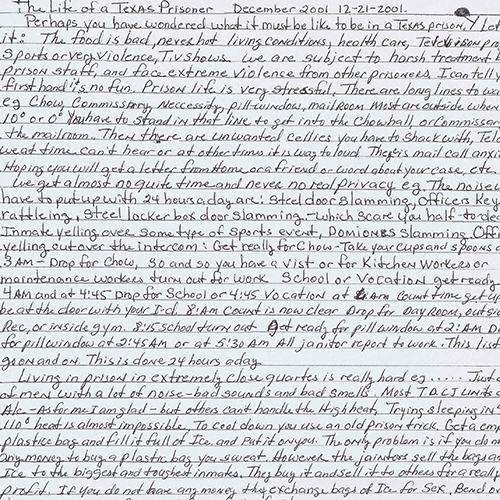 The Life of a Texas Prisoner December 2001 12-21-2001.
Perhaps you have wondered what it must be like to be in a Texas prison, Y Let
it: The food is bad, never hot living conditions, health care, Television
Sports or very Violence, T.V shows. we are subject to harsh treatment b
prison staff, and face extreme violence from other prisoners. I can tell y
first hand it's no fun. Prison life is very stressful, There are long lines to wa
eg Chow, Commissary, Neccessity, pill window, mailroom Most are outside when
10° or 0° You have to stand in that line to get into the Chowhall, or Commissar
the mailroom. Then there are unwanted cellies you have to shack with, Tele
we at time can't hear or at other times it is way to loud. There's mail call anxi
Hoping you will get a letter from Home or a friend or word about your case, etc.
We get almost no quite time and never no real privacy eg. The noise
have to put up with 24 hours a day are: Steel door slamming, Officers Key
rattleing, Steel locker box door slamming - which scare you half-to-de
Inmate yelling over some type of sports event, Dominoes slamming, Offi
yelling out over the intercom: Get really for Chow-Take your cups and spoons
3AM- Drop for Chow, So and so you have a vist or for Kitchen Workers or
maintenance workers turn out for work School or Vocation get ready
4AM and at 4:45 Drop for School or 4:45 Vocation at Count time get
be at the door with your I-d, 8:AM Count is now clear Drop for Day Room, outsi
Rec, or inside gym. 8:15 school turn out Get ready for pill window at 2:AM D
for pill window at 2:45AM or at 5:30 AM All janitor report to work. This list
go on and on. This is done 24 hours a day.
Living in prison in extremely close quarters is really hard eg ..... Just
of men with a lot of noise - bad sounds and bad smells. Most T.D.C.J units
A/c - As for me I am glad - but others cant handle the High heat, Trying sleeping in
110° heat is almost impossible, To cool down you use an old prison trick. Get a em
plastice bag and fill it full of Ice and Put it on you. The only problem is if you do no
any money to buy a plastic bag you sweat. However the janitors sell the bags an
Ice to the biggest and toughest inmates. They buy it and sell it to others for a really
profit. If you do not have any money the exchange bags of Ice for Sex, Bend